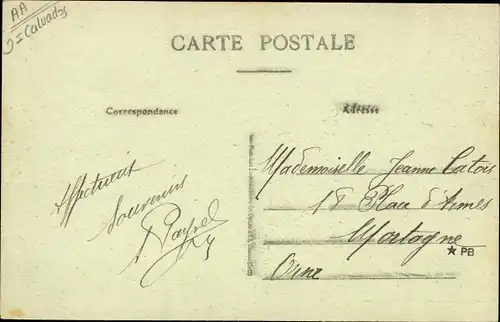 AA
J = Calvados
CARTE POSTALE
Correspondance
Adresse
Affectueux
Souvenirs
Mademoiselle Jeanne Catois
18 Place d'Armes
Mortagne
Orne
★ PB